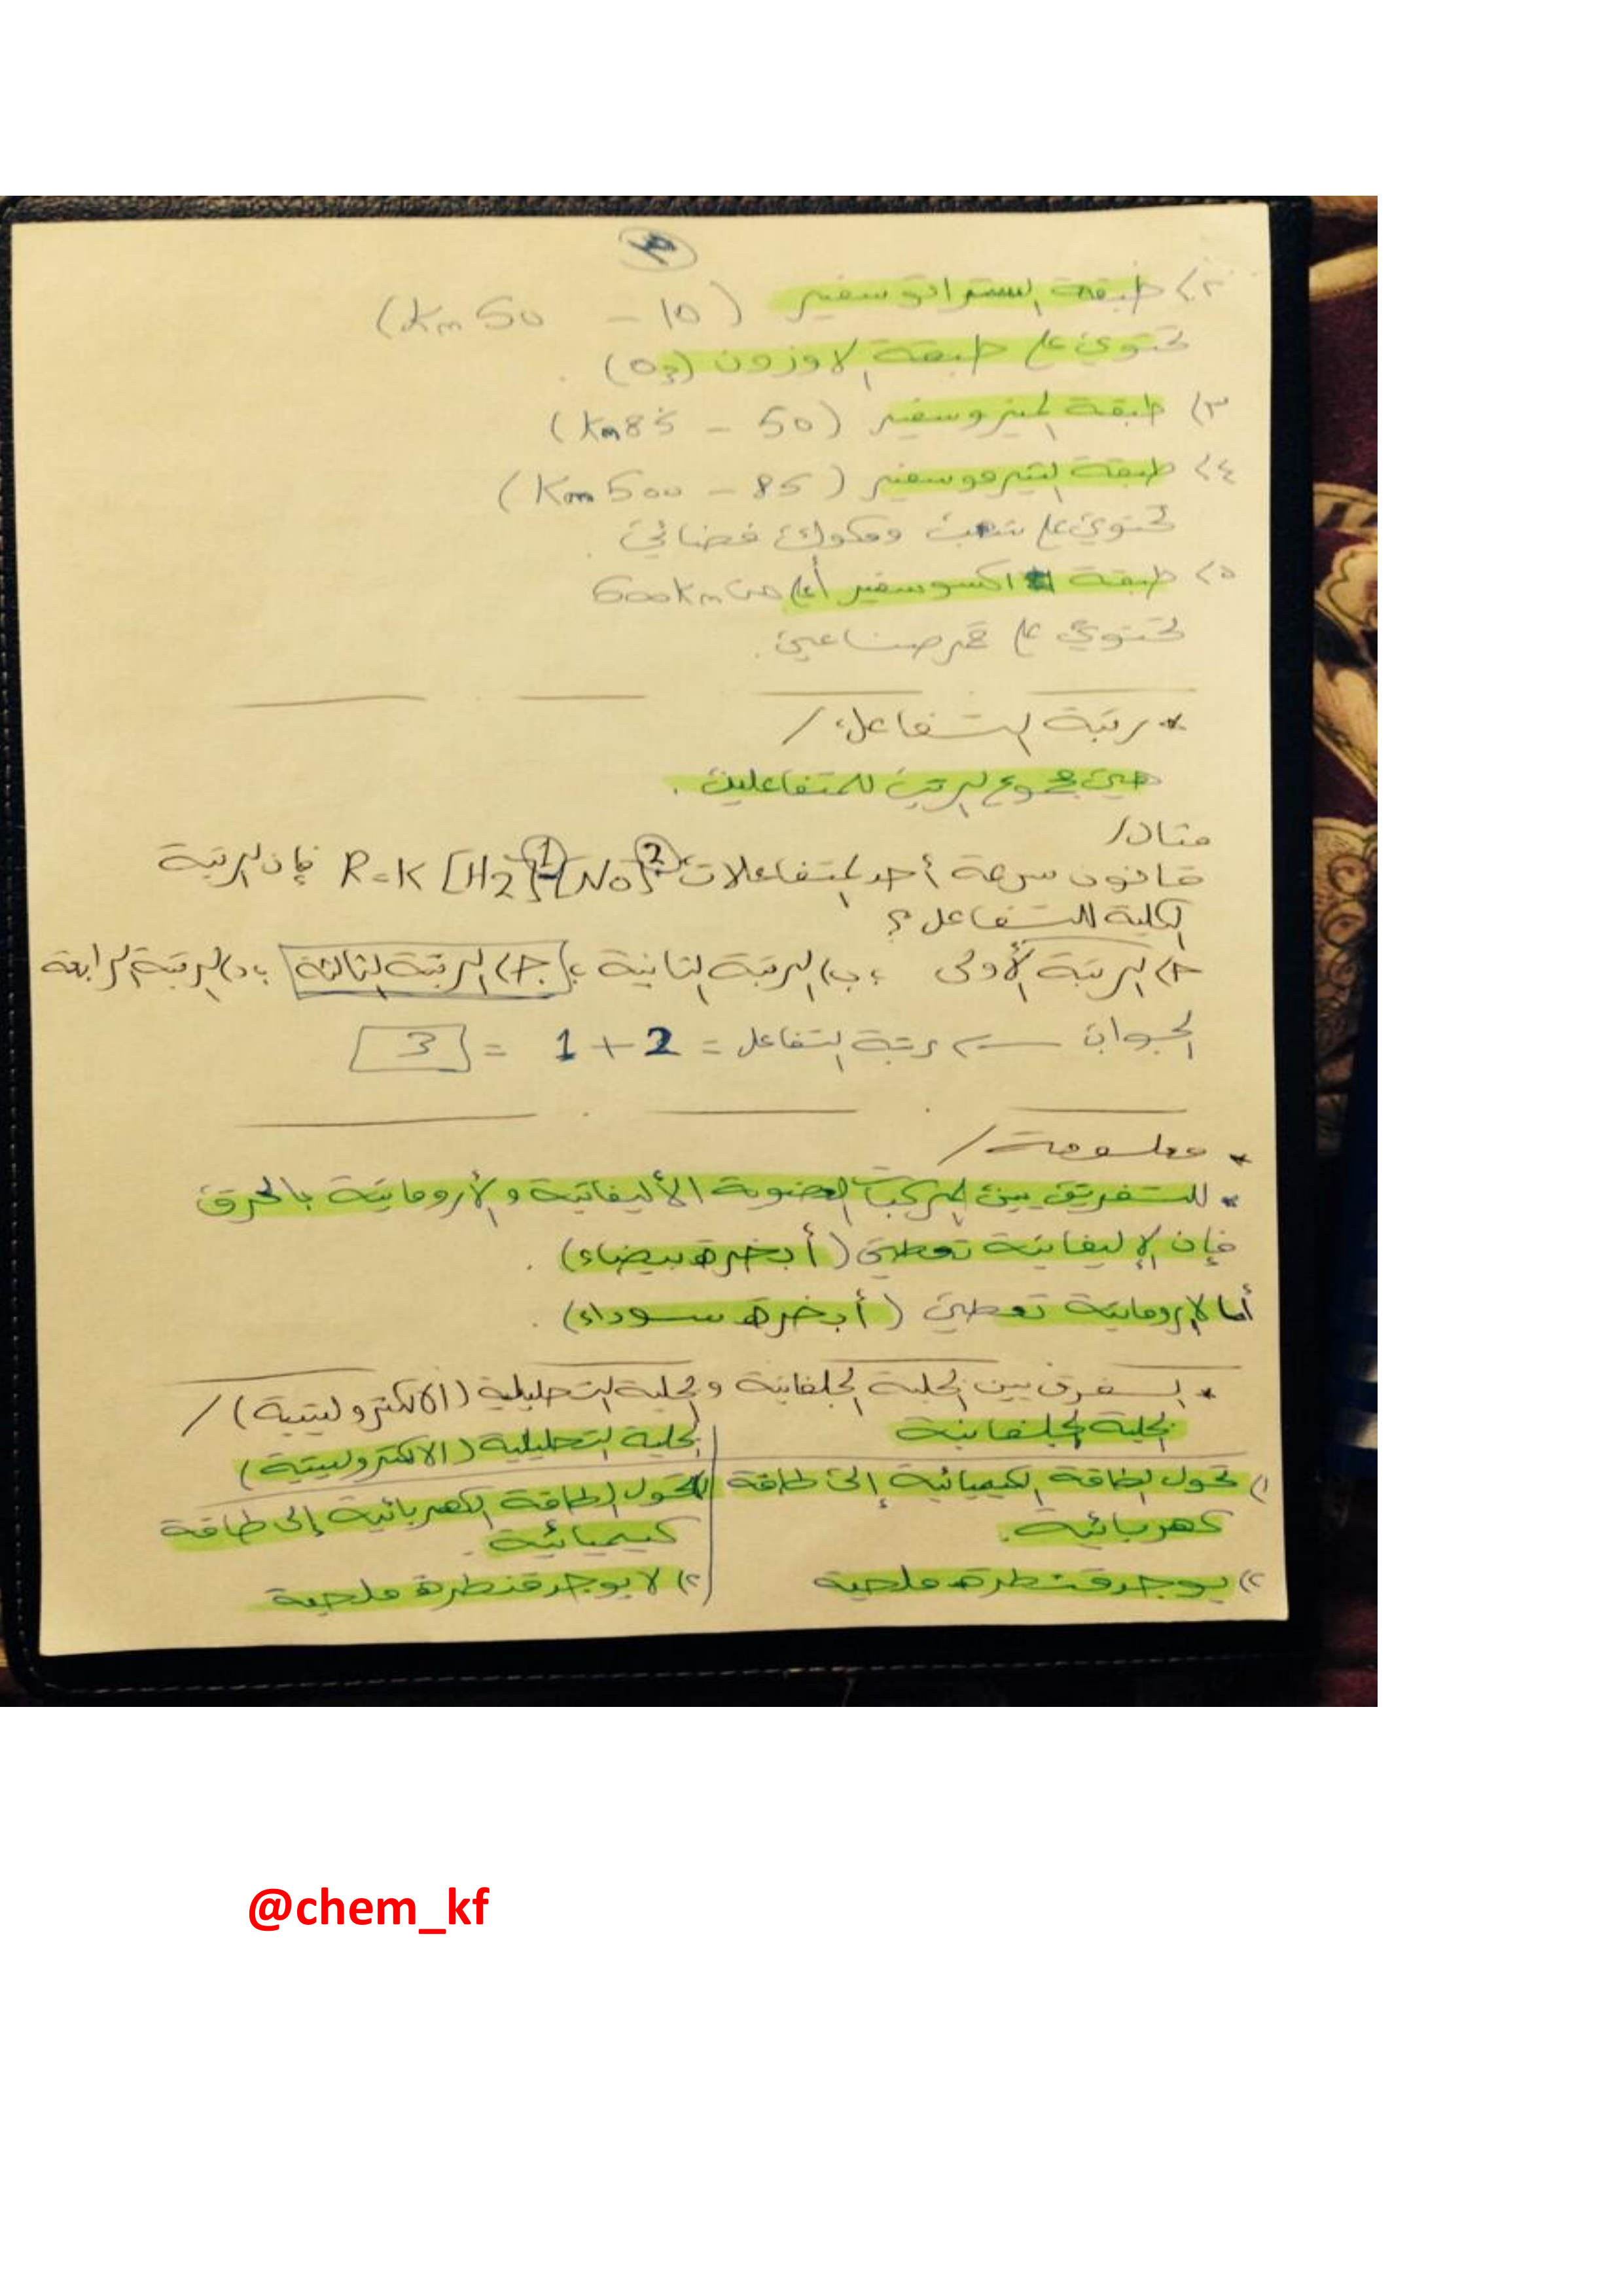 ٢) طبقة الستراتوسفير (10 - 50 Km)
تحتوي على طبقة الاوزون (O3).
٣) طبقة الميزوسفير (50 - 85 Km)
٤) طبقة الثيرموسفير (85 - 500 Km)
تحتوي على شهب ومكوك فضائي.
٥) طبقة اكسوسفير أعلى من 600Km
تحتوي على قمر صناعي.
* رتبة التفاعل /
هي مجموع الرتب للمتفاعلين.
مثال /
قانون سرعة أحد المتفاعلات R=K [H2]1 [NO]2 فإن الرتبة
الكلية للتفاعل؟
أ) الرتبة الأولى ؛ ب) الرتبة الثانية ؛ ج) الرتبة الثالثة ؛ د) الرتبة الرابعة
الجواب ← رتبة التفاعل = 2 + 1 = 3
* معلومة /
* للتفريق بين المركبات العضوية الأليفاتية والأروماتية بالحرق
فإن الإليفاتية تعطي (أبخرة بيضاء).
أما الاروماتية تعطي (أبخرة سوداء).
* الفرق بين الخلية الجلفانية والخلية التحليلية (الالكتروليتية) /
الخلية الجلفانية
الخلية التحليلية (الالكتروليتية)
١) تحول الطاقة الكيميائية إلى طاقة
كهربائية.
تحول الطاقة الكهربائية إلى طاقة
كيميائية.
٢) يوجد قنطرة ملحية
٢) لا يوجد قنطرة ملحية
@chem_kf